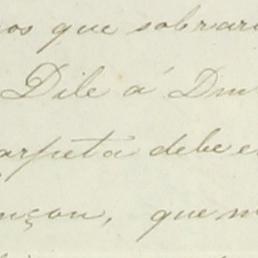 os que sobrar
Dile á Dm
arpeta debe e
nçon, que m